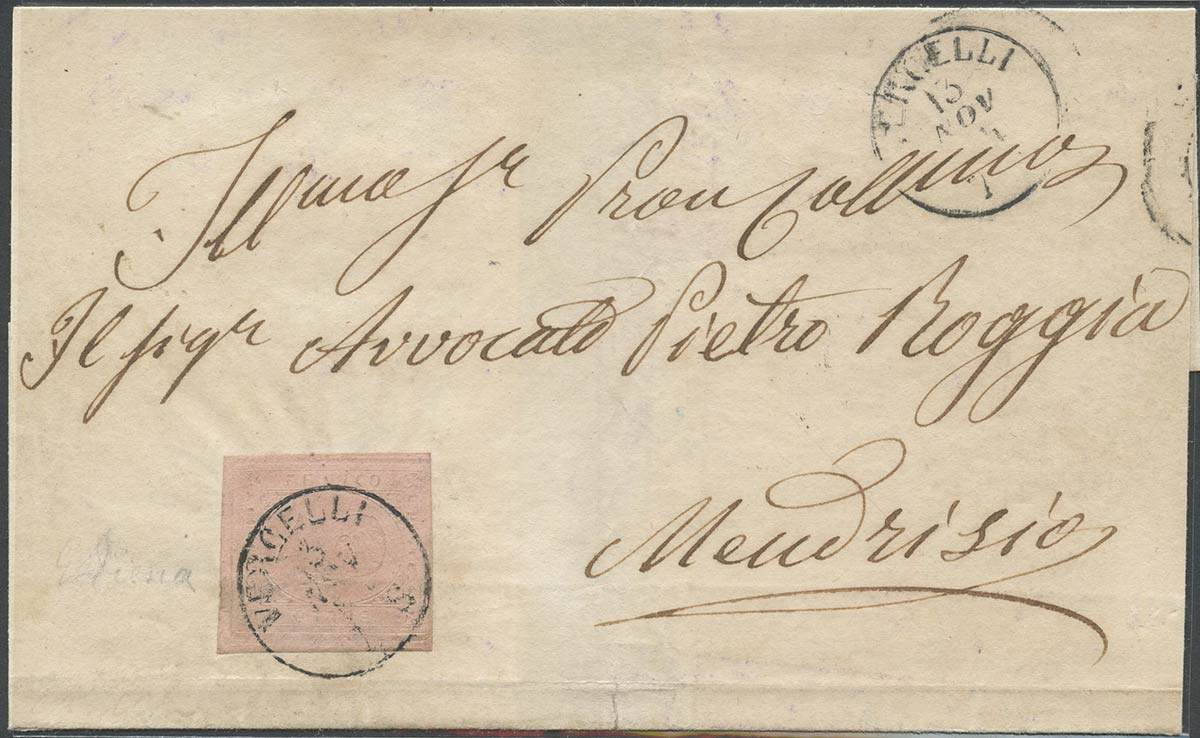 VERCELLI
13
NOV
Illmo Sr Pron Collmo
Il sigr Avvocato Pietro Roggia
Mendrisio
VERCELLI